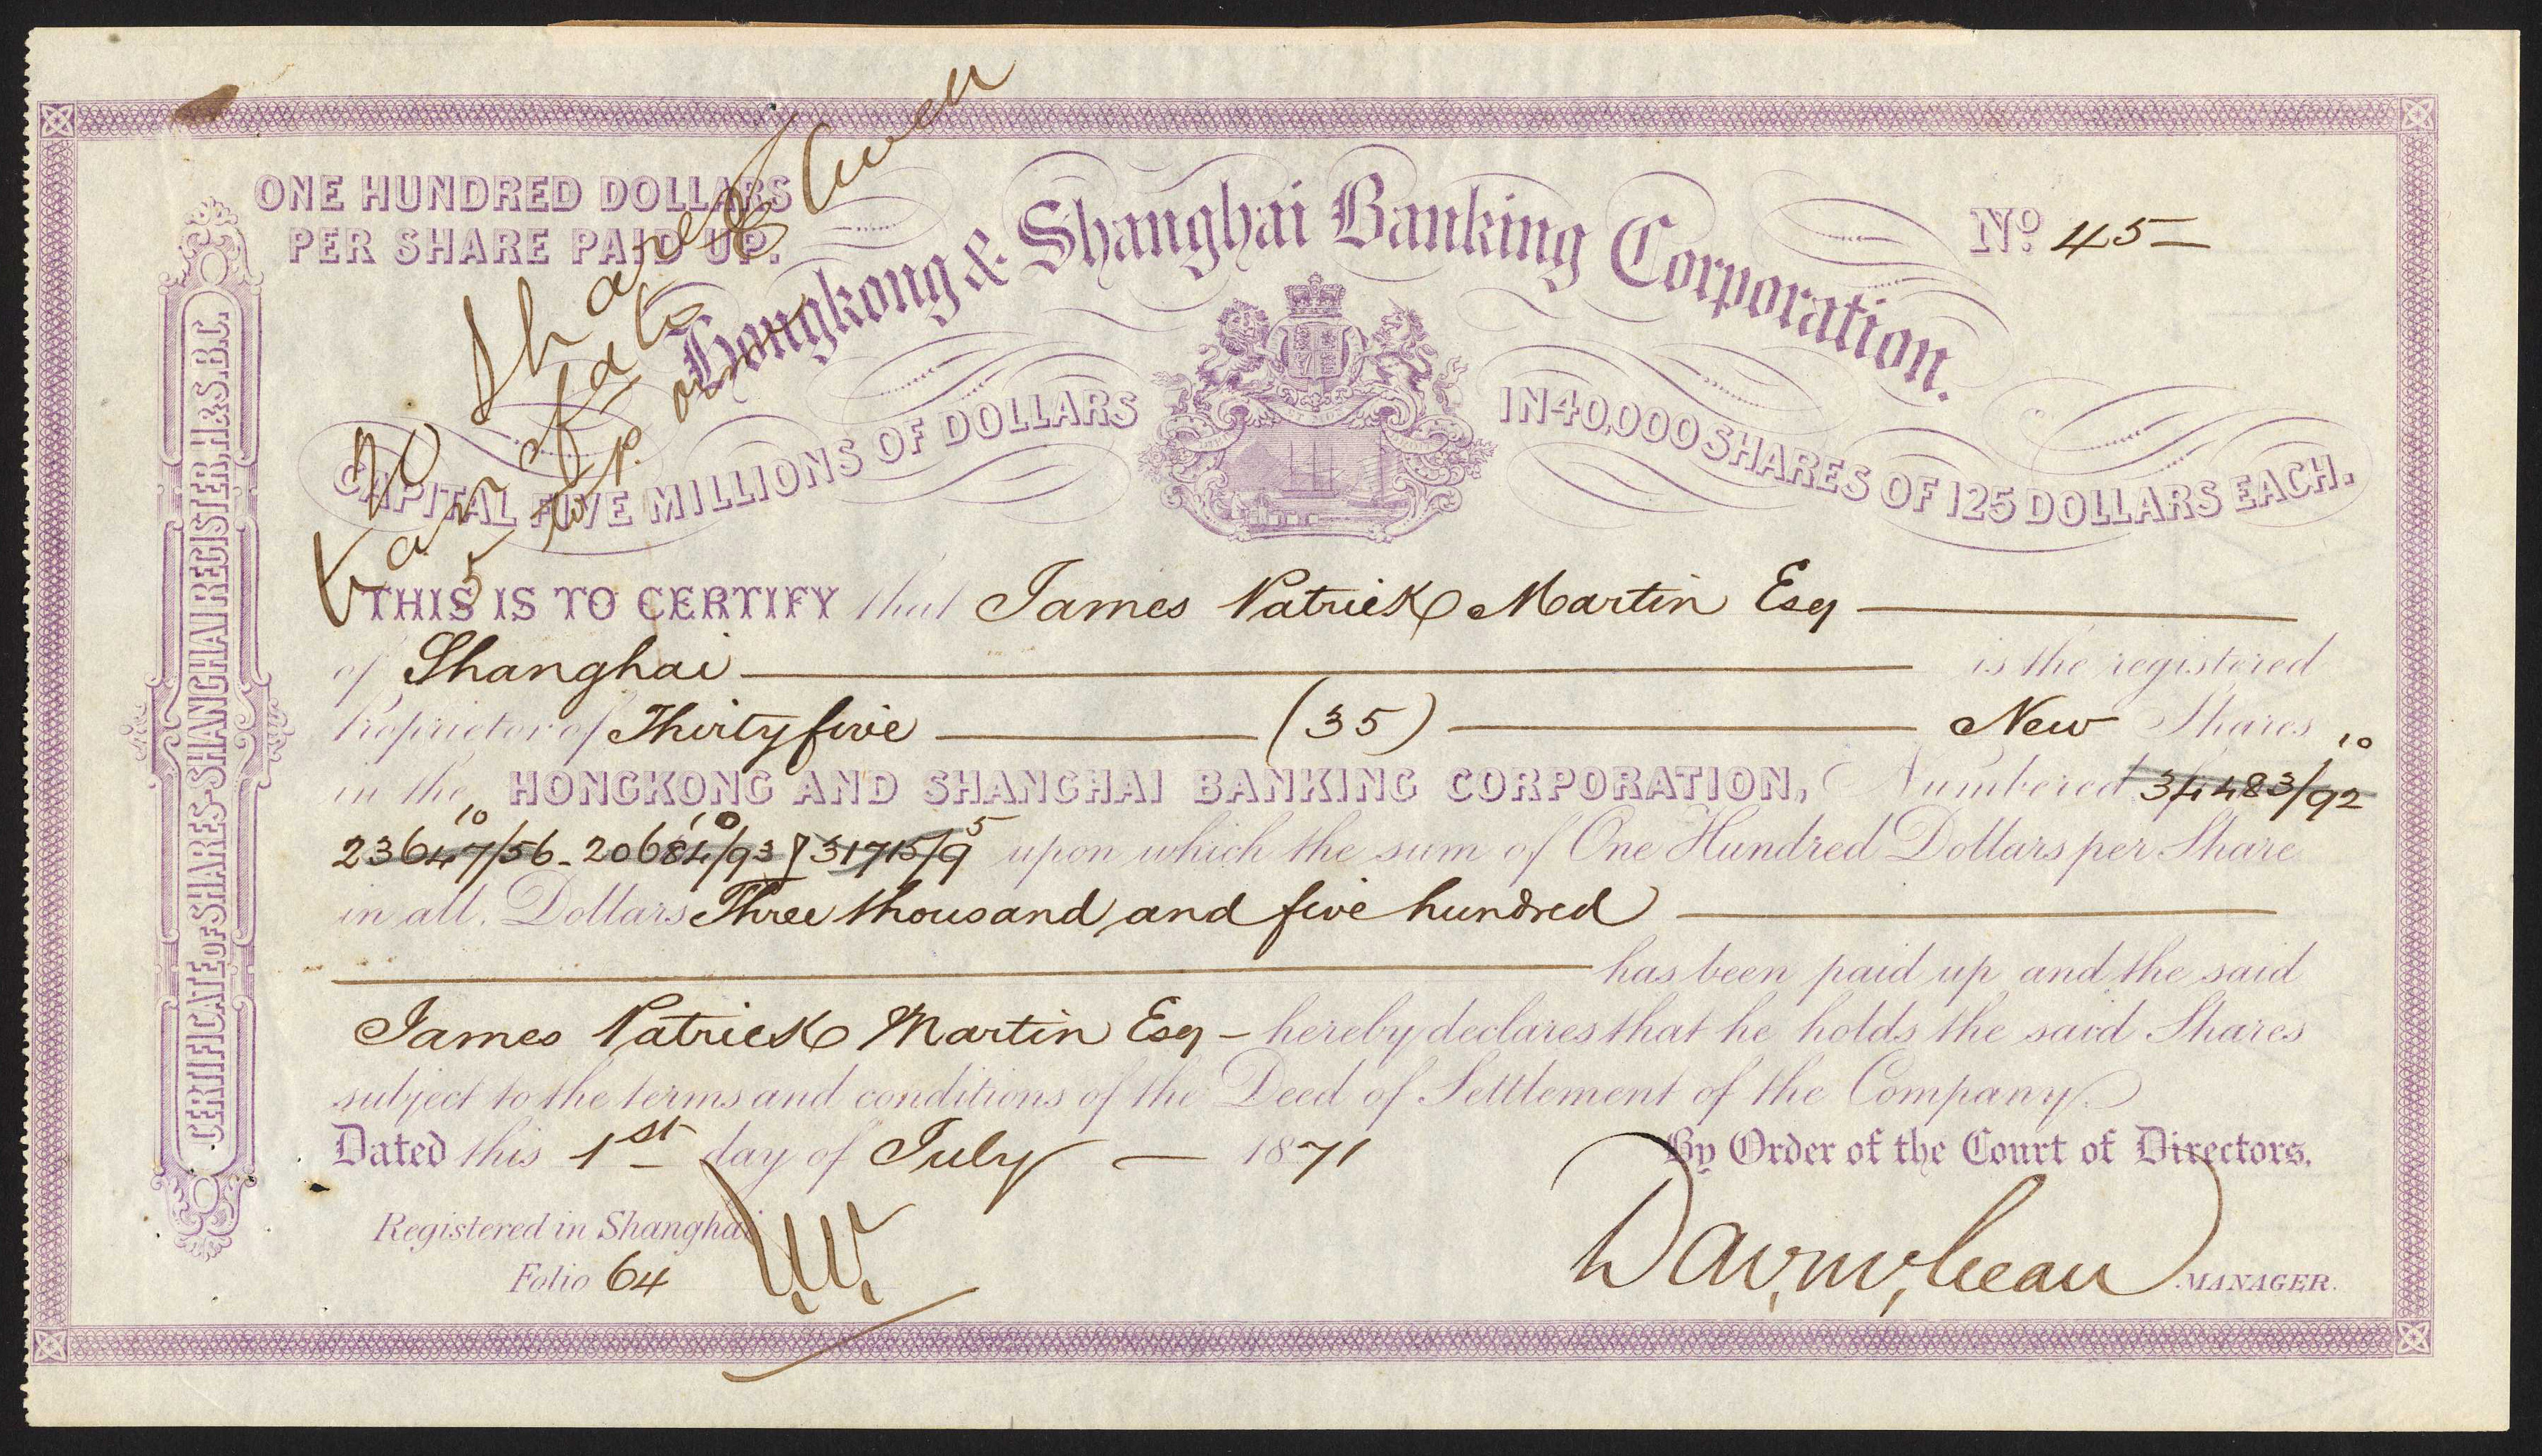 ONE HUNDRED DOLLARS
PER SHARE PAID UP.
No. 45
Hongkong & Shanghai Banking Corporation.
CAPITAL FIVE MILLIONS OF DOLLARS
IN 40,000 SHARES OF 125 DOLLARS EACH.
CERTIFICATE OF SHARES-SHANGHAI REGISTER, H. & S. B. C.
20 Shares
THIS IS TO CERTIFY that James Patrick Martin Esq
of Shanghai is the registered
Proprietor of Thirty five (35) New Shares
10
in the HONGKONG AND SHANGHAI BANKING CORPORATION, Numbered 34483/92
10 10 5
23647/56 - 20684/93 & 31715/9 upon which the sum of One Hundred Dollars per Share
in all, Dollars Three thousand and five hundred
has been paid up and the said
James Patrick Martin Esq - hereby declares that he holds the said Shares
subject to the terms and conditions of the Deed of Settlement of the Company.
Dated this 1st day of July 1871
By Order of the Court of Directors.
Registered in Shanghai
Folio 64
MANAGER.